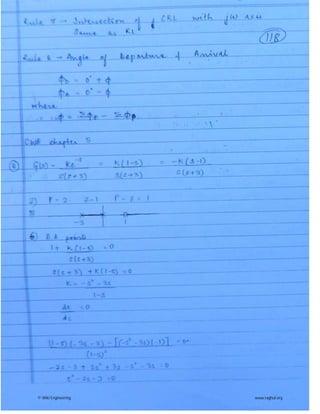 Rule 7 → Intersection of CRL with jω axis
Same as RL
118
Rule 8 → Angle of Departure & Arrival
ϕD = 0° + ϕ
ϕA = 0° - ϕ
where
ϕ = Σϕz - Σϕp
CWB chapter 5
G(s) = Ke^-s / s(s+3) = K(1-s) / s(s+3) = -K(s-1) / s(s+3)
2) P = 2 Z = 1 P-Z = 1
-3 1
6) B.A points
1 + K(1-s) / s(s+3) = 0
s(s+3) + K(1-s) = 0
K = -s² - 3s / 1-s
dk / ds = 0
(1-s)(-2s-3) - [(-s²-3s)(-1)] / (1-s)² = 0
-2s - 3 + 2s² + 3s - s² - 3s = 0
s² - 2s - 3 = 0
© Wiki Engineering
www.raghul.org